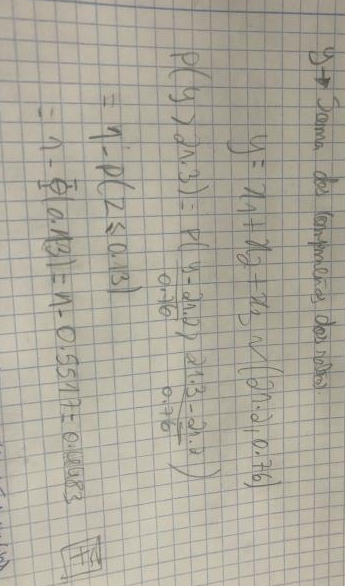 y → Soma dos comprimentos das rotas.
y = x1 + x2 + x3 ~ (21.2, 0.76)
P(y > 21.3) = P(y - 21.2 / 0.76 > 21.3 - 21.2 / 0.76)
= 1 - P(Z ≤ 0.13)
= 1 - Φ(0.13) = 1 - 0.5517 = 0.4483 F